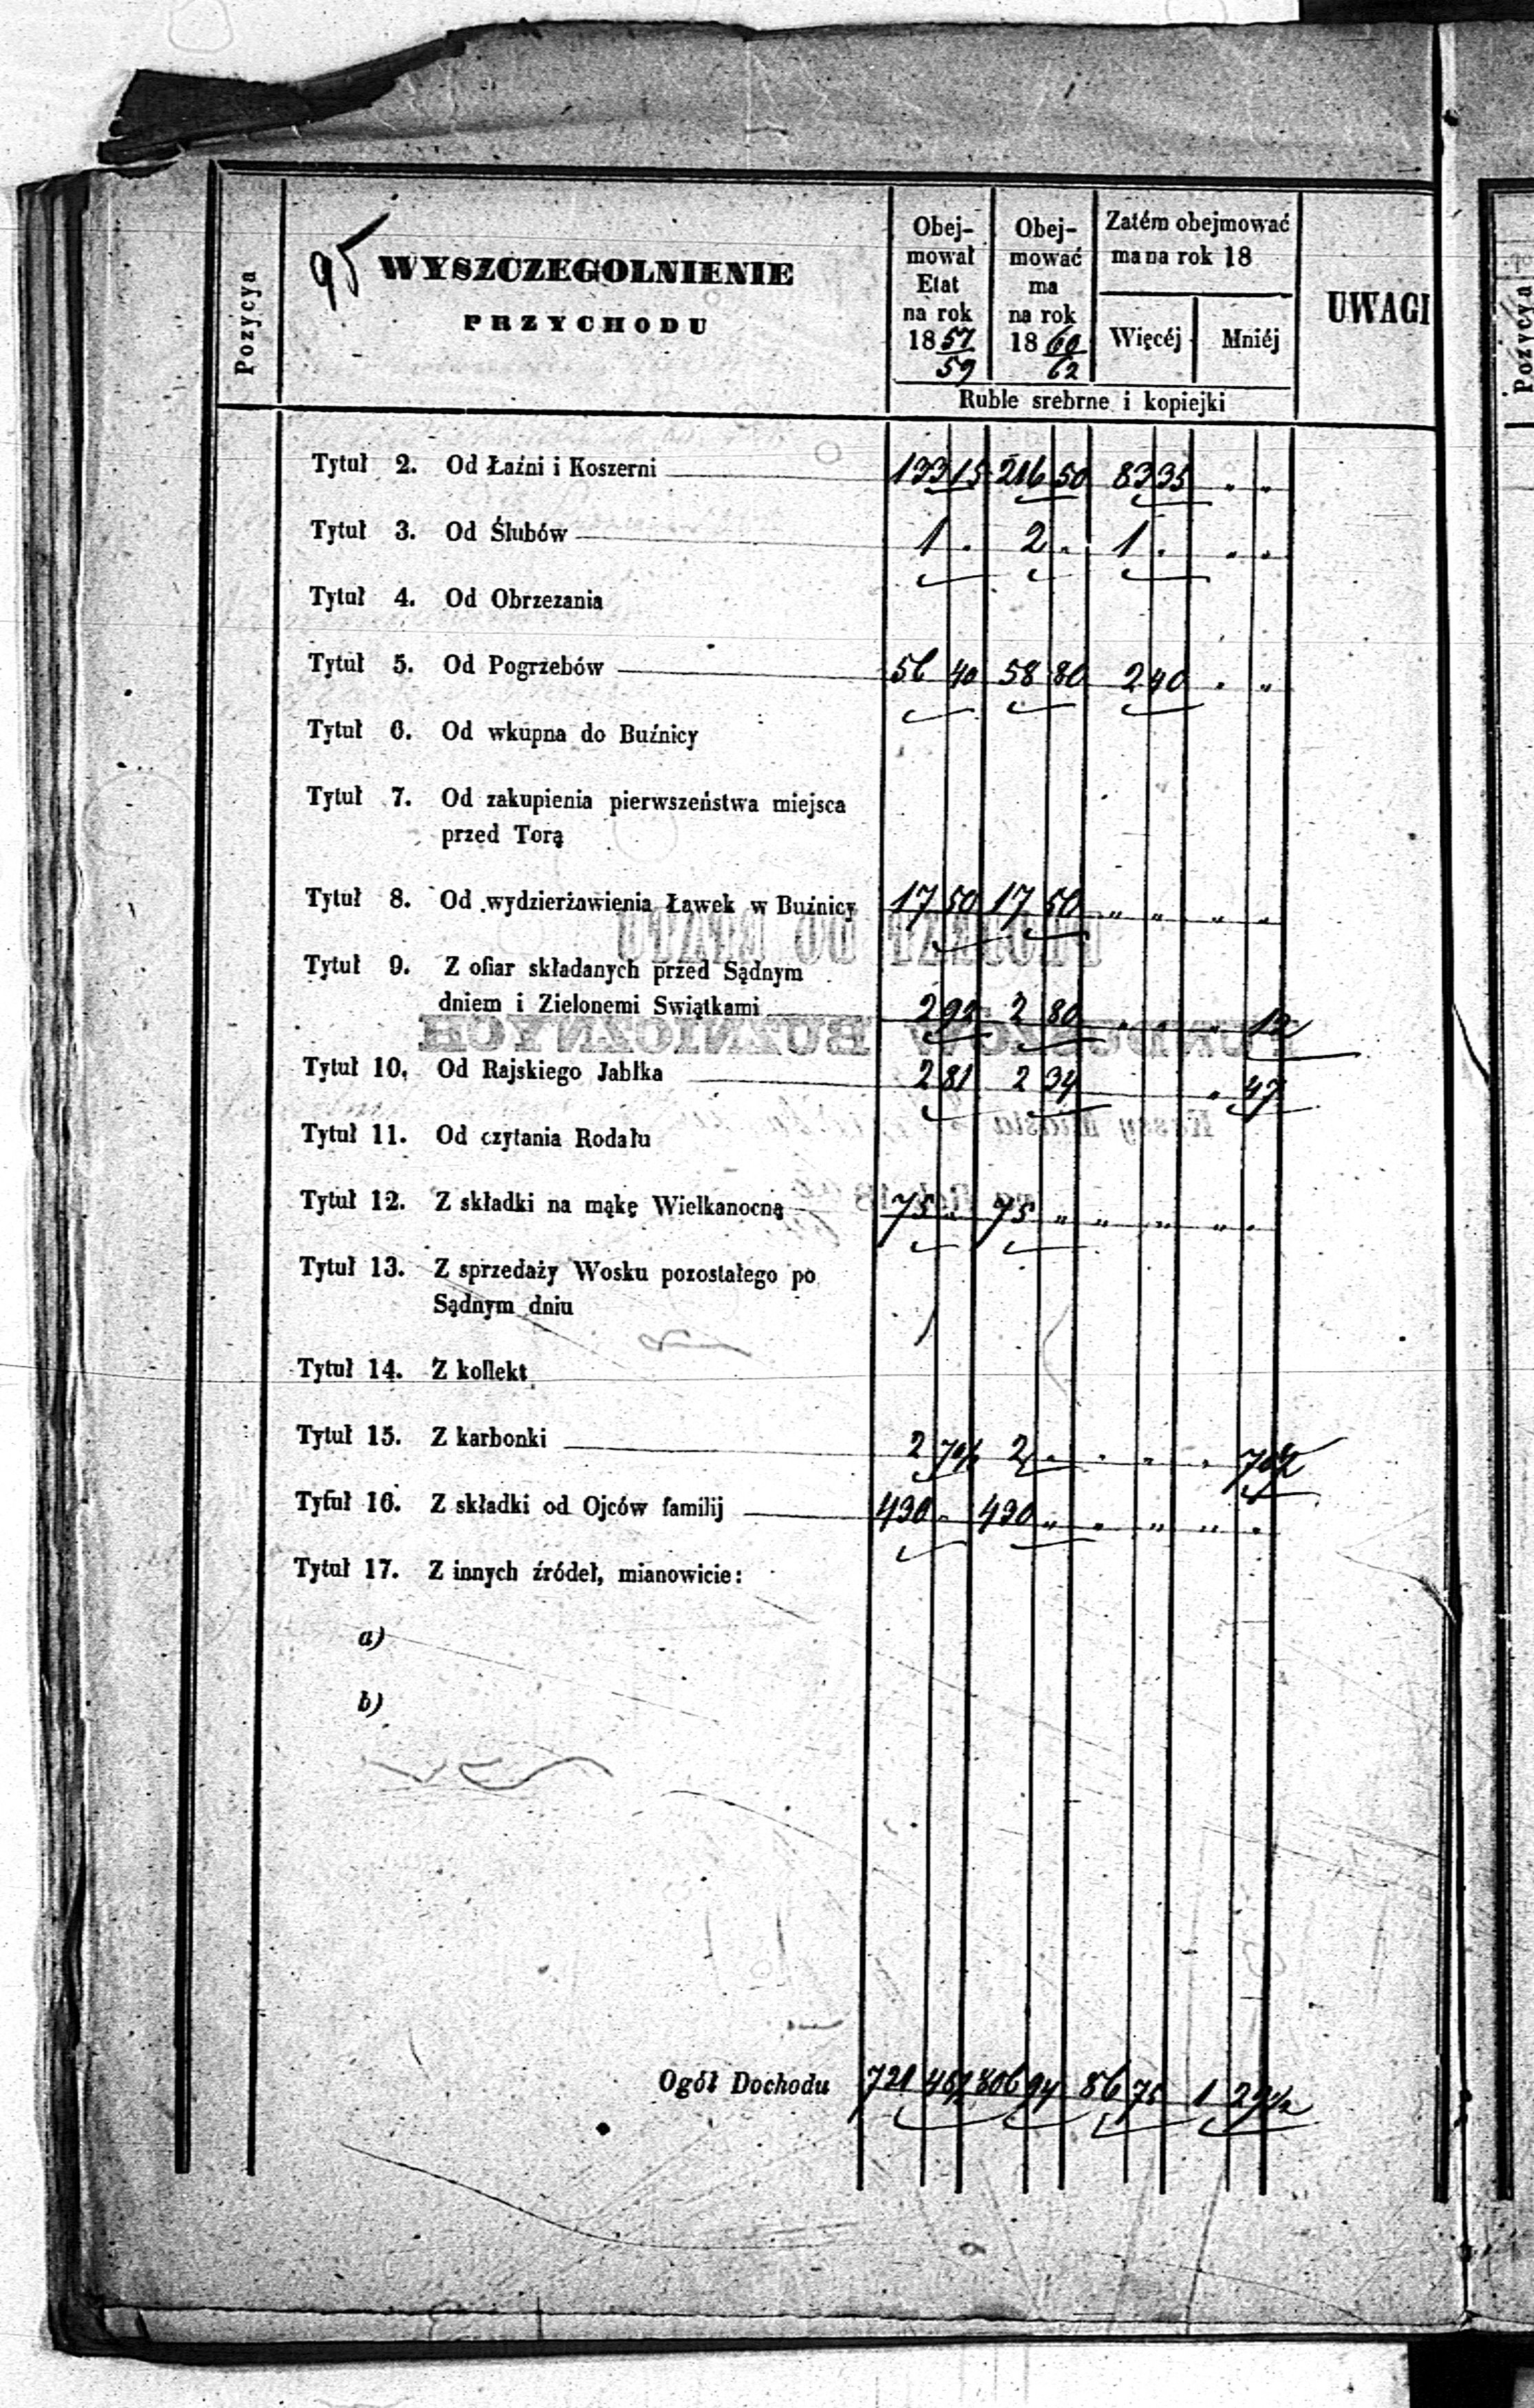 95
Pozycya
WYSZCZEGOLNIENIE
PRZYCHODU
Obej-
mował
Etat
na rok
18 57/59
Obej-
mować
ma
na rok
18 60/62
Zatém obejmować
ma na rok 18
Więcéj
Mniéj
UWAGI
Ruble srebrne i kopiejki
Tytuł 2. Od Łaźni i Koszerni 133 15 216 50 83 35 " "
Tytuł 3. Od Ślubów 1 . 2 " 1 . " "
Tytuł 4. Od Obrzezania
Tytuł 5. Od Pogrzebów 56 40 58 80 2 40 " "
Tytuł 6. Od wkupna do Buźnicy
Tytuł 7. Od zakupienia pierwszeństwa miejsca
przed Torą
Tytuł 8. Od wydzierżawienia Ławek w Buźnicy 17 50 17 50 " " " "
Tytuł 9. Z ofiar składanych przed Sądnym
dniem i Zielonemi Swiątkami 2 92 2 80 " " " 12
Tytuł 10. Od Rajskiego Jabłka 2 81 2 34 " 47
Tytuł 11. Od czytania Rodału
Tytuł 12. Z składki na mąkę Wielkanocną 75 " 75 " " " " "
Tytuł 13. Z sprzedaży Wosku pozostałego po
Sądnym dniu
Tytuł 14. Z kollekt
Tytuł 15. Z karbonki 2 70½ 2 " " " " 70½
Tytuł 16. Z składki od Ojców familij 430 " 430 " " " " "
Tytuł 17. Z innych źródeł, mianowicie:
a)
b)
Ogół Dochodu 721 48½ 806 94 86 75 1 29½
Pozycya